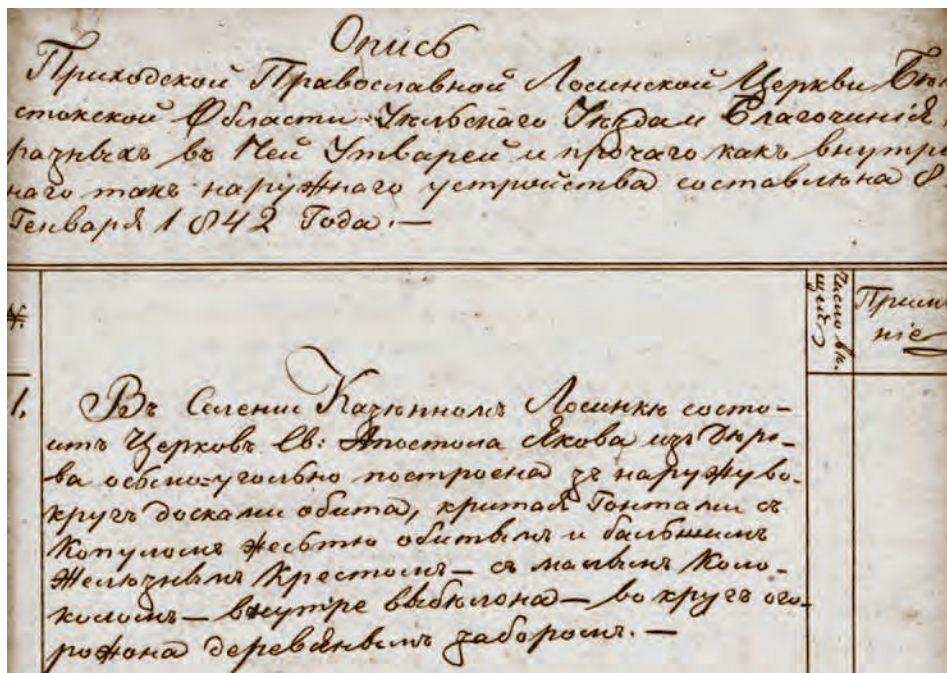 Опись
Приходской Православной Лосинской Церкви Бѣло
стокской Области Уѣзда и Благочинія,
разныхъ въ Ней Утварей и прочаго какъ внутрен
наго такъ наружнаго устройства составлена 8
Генваря 1842 Года. —
№.
Число ве.
щей
Примѣ
ніе
1.
Въ Селеніи Казенномъ Лосинкѣ состо-
итъ Церковъ Св: Апостола Якова изъ Дере-
ва осьмо-угольно построена зъ наружу во-
кругъ досками обита, критая Гонтами съ
Копуломъ жесьтю обитымъ и бальшимъ
Желѣзнымъ Крестомъ — съ малымъ Коло-
коломъ — внутре выбѣлона — во кругъ ого-
рожона деревяннымъ заборомъ. —